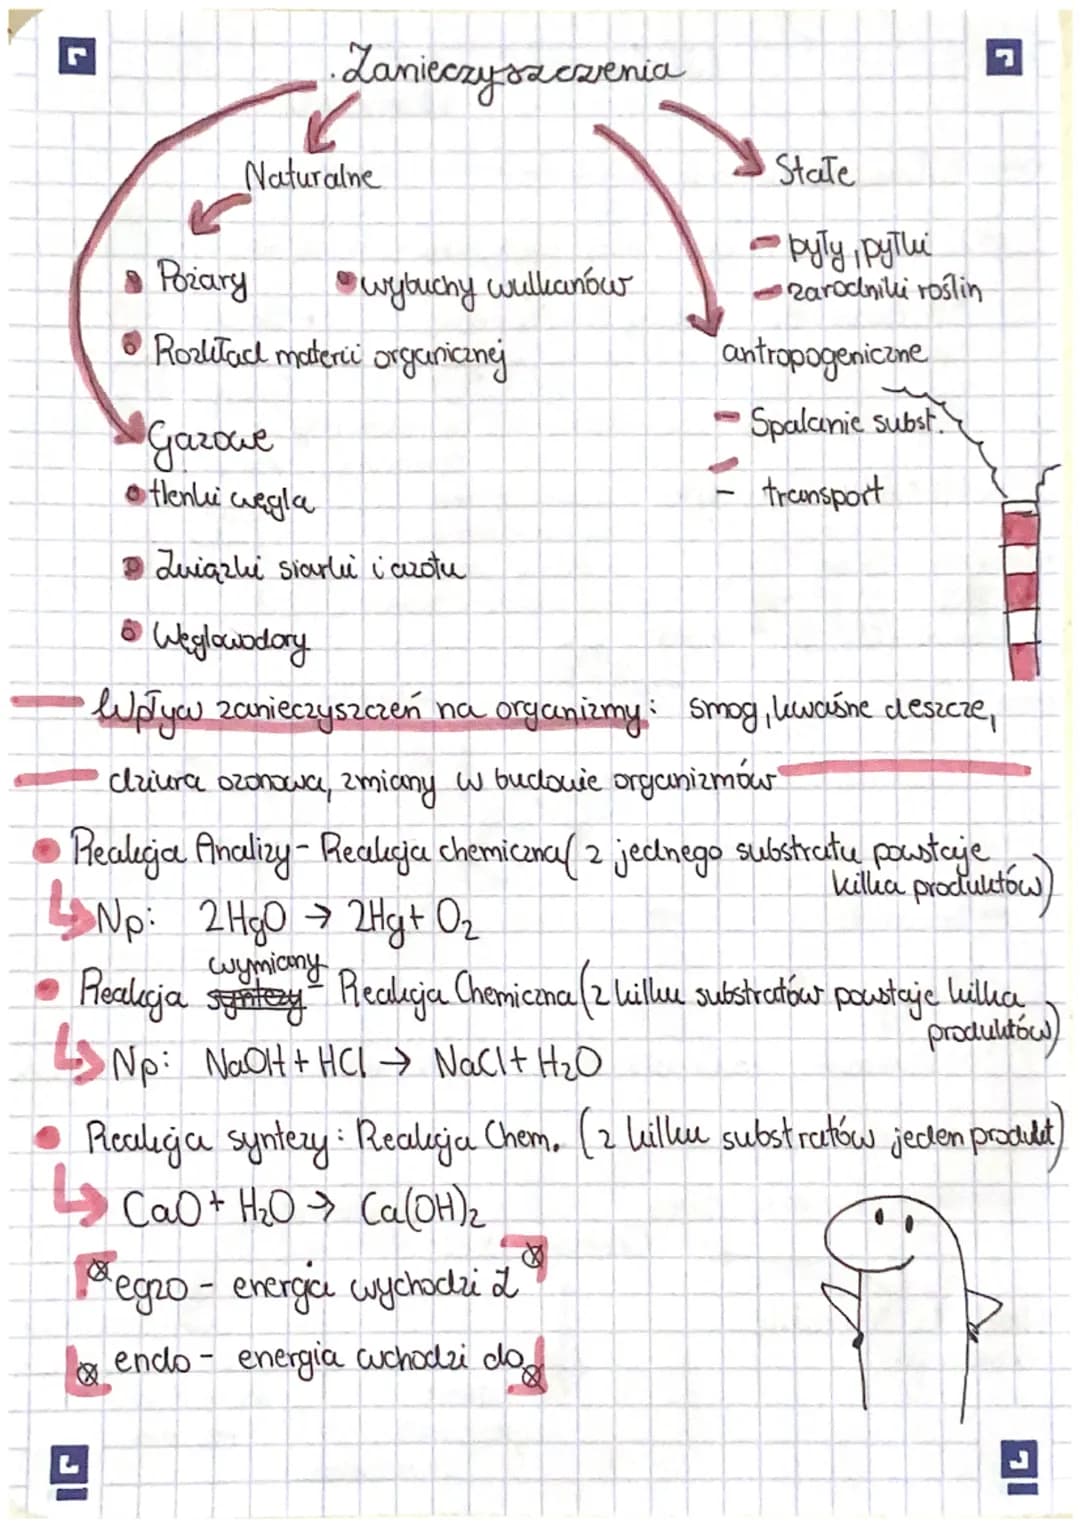 Zanieczyszczenia
Naturalne
Stałe
- pyły, pyłki
- zarodniki roślin
• Pożary • wybuchy wulkanów
• Rozkład materii organicznej
antropogeniczne
- Spalanie subst.
- transport
Gazowe
• tlenki węgla
• Związki siarki i azotu
• Węglowodory
Wpływ zanieczyszczeń na organizmy: smog, kwaśne deszcze,
dziura ozonowa, zmiany w budowie organizmów
• Reakcja Analizy - Reakcja chemiczna (z jednego substratu powstaje
kilka produktów)
Np: 2HgO → 2Hg + O₂
wymiany
• Reakcja syntezy - Reakcja Chemiczna (z kilku substratów powstaje kilka
produktów)
Np: NaOH + HCl → NaCl + H₂O
• Reakcja syntezy: Reakcja Chem. (z kilku substratów jeden produkt)
CaO + H₂O → Ca(OH)₂
egzo - energia wychodzi z
endo - energia wchodzi do